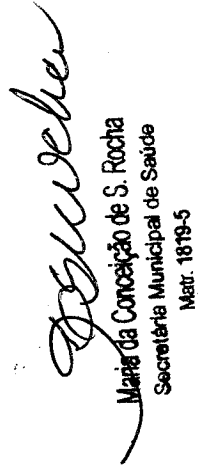 Maria da Conceição de S. Rocha
Secretária Municipal de Saúde
Matr. 1819-5